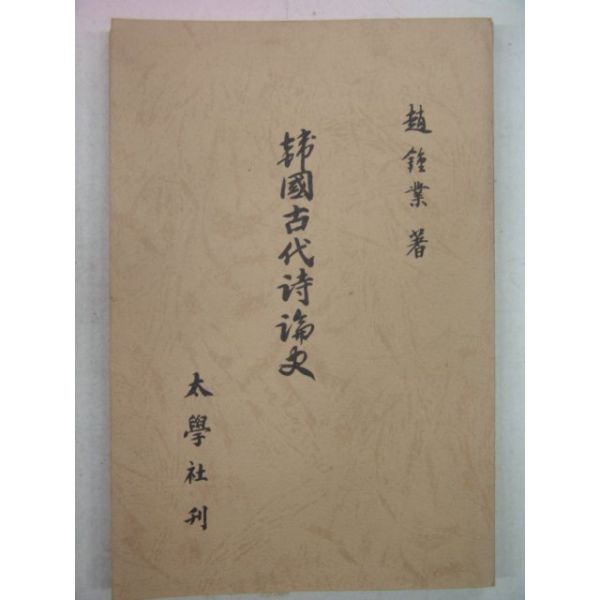 趙鍾業 著
韓國古代詩論史
太學社刊